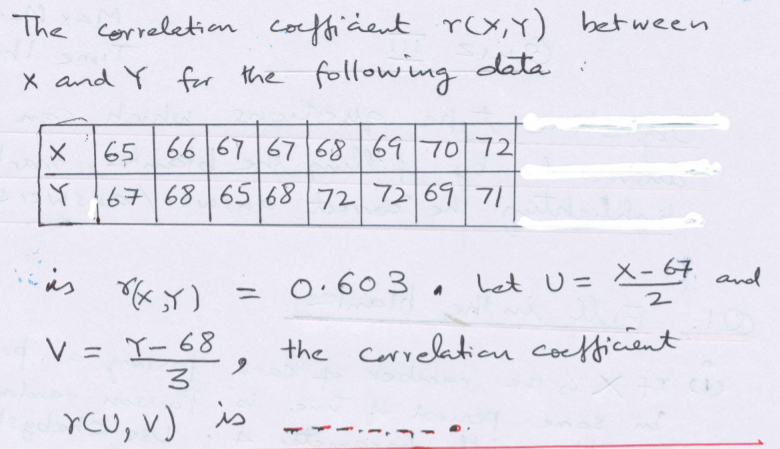 The correlation coefficient r(X,Y) between
X and Y for the following data :
X : 65 66 67 67 68 69 70 72
Y 67 68 65 68 72 72 69 71
is r(X,Y) = 0.603. Let U = X-67/2 and
V = Y-68/3, the correlation coefficient
r(U,V) is -------.